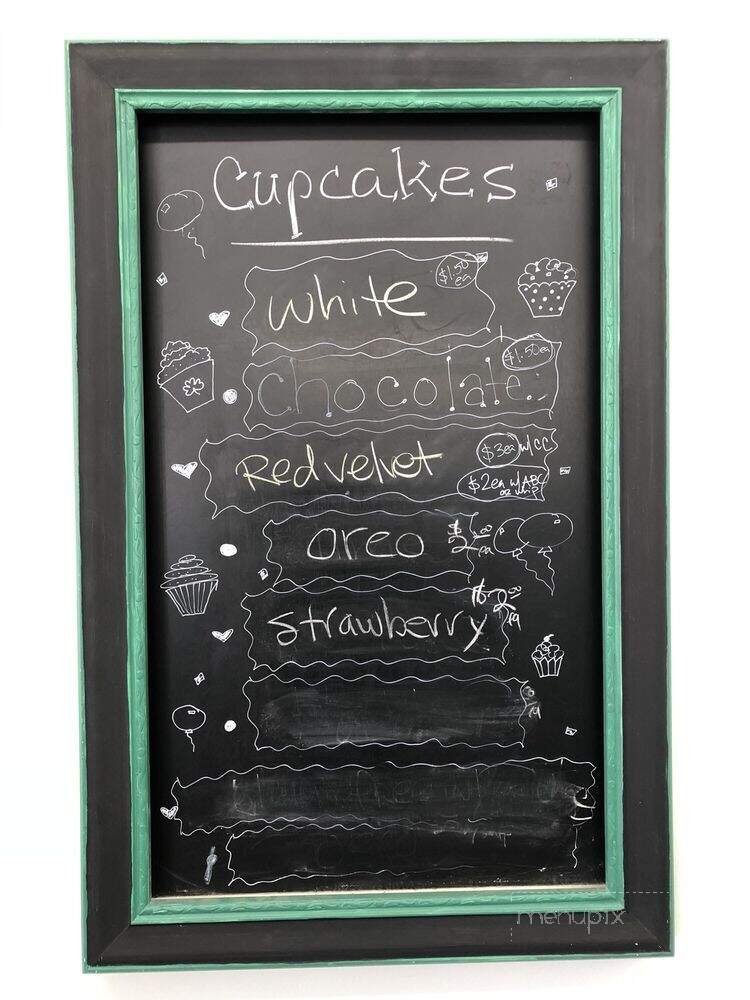 Cupcakes
white $1.50 ea
chocolate $1.50ea
Red velvet $3ea w/CC
$2ea w/ABC
or whip
oreo $2.00 ea
strawberry $2.00 ea
menupix